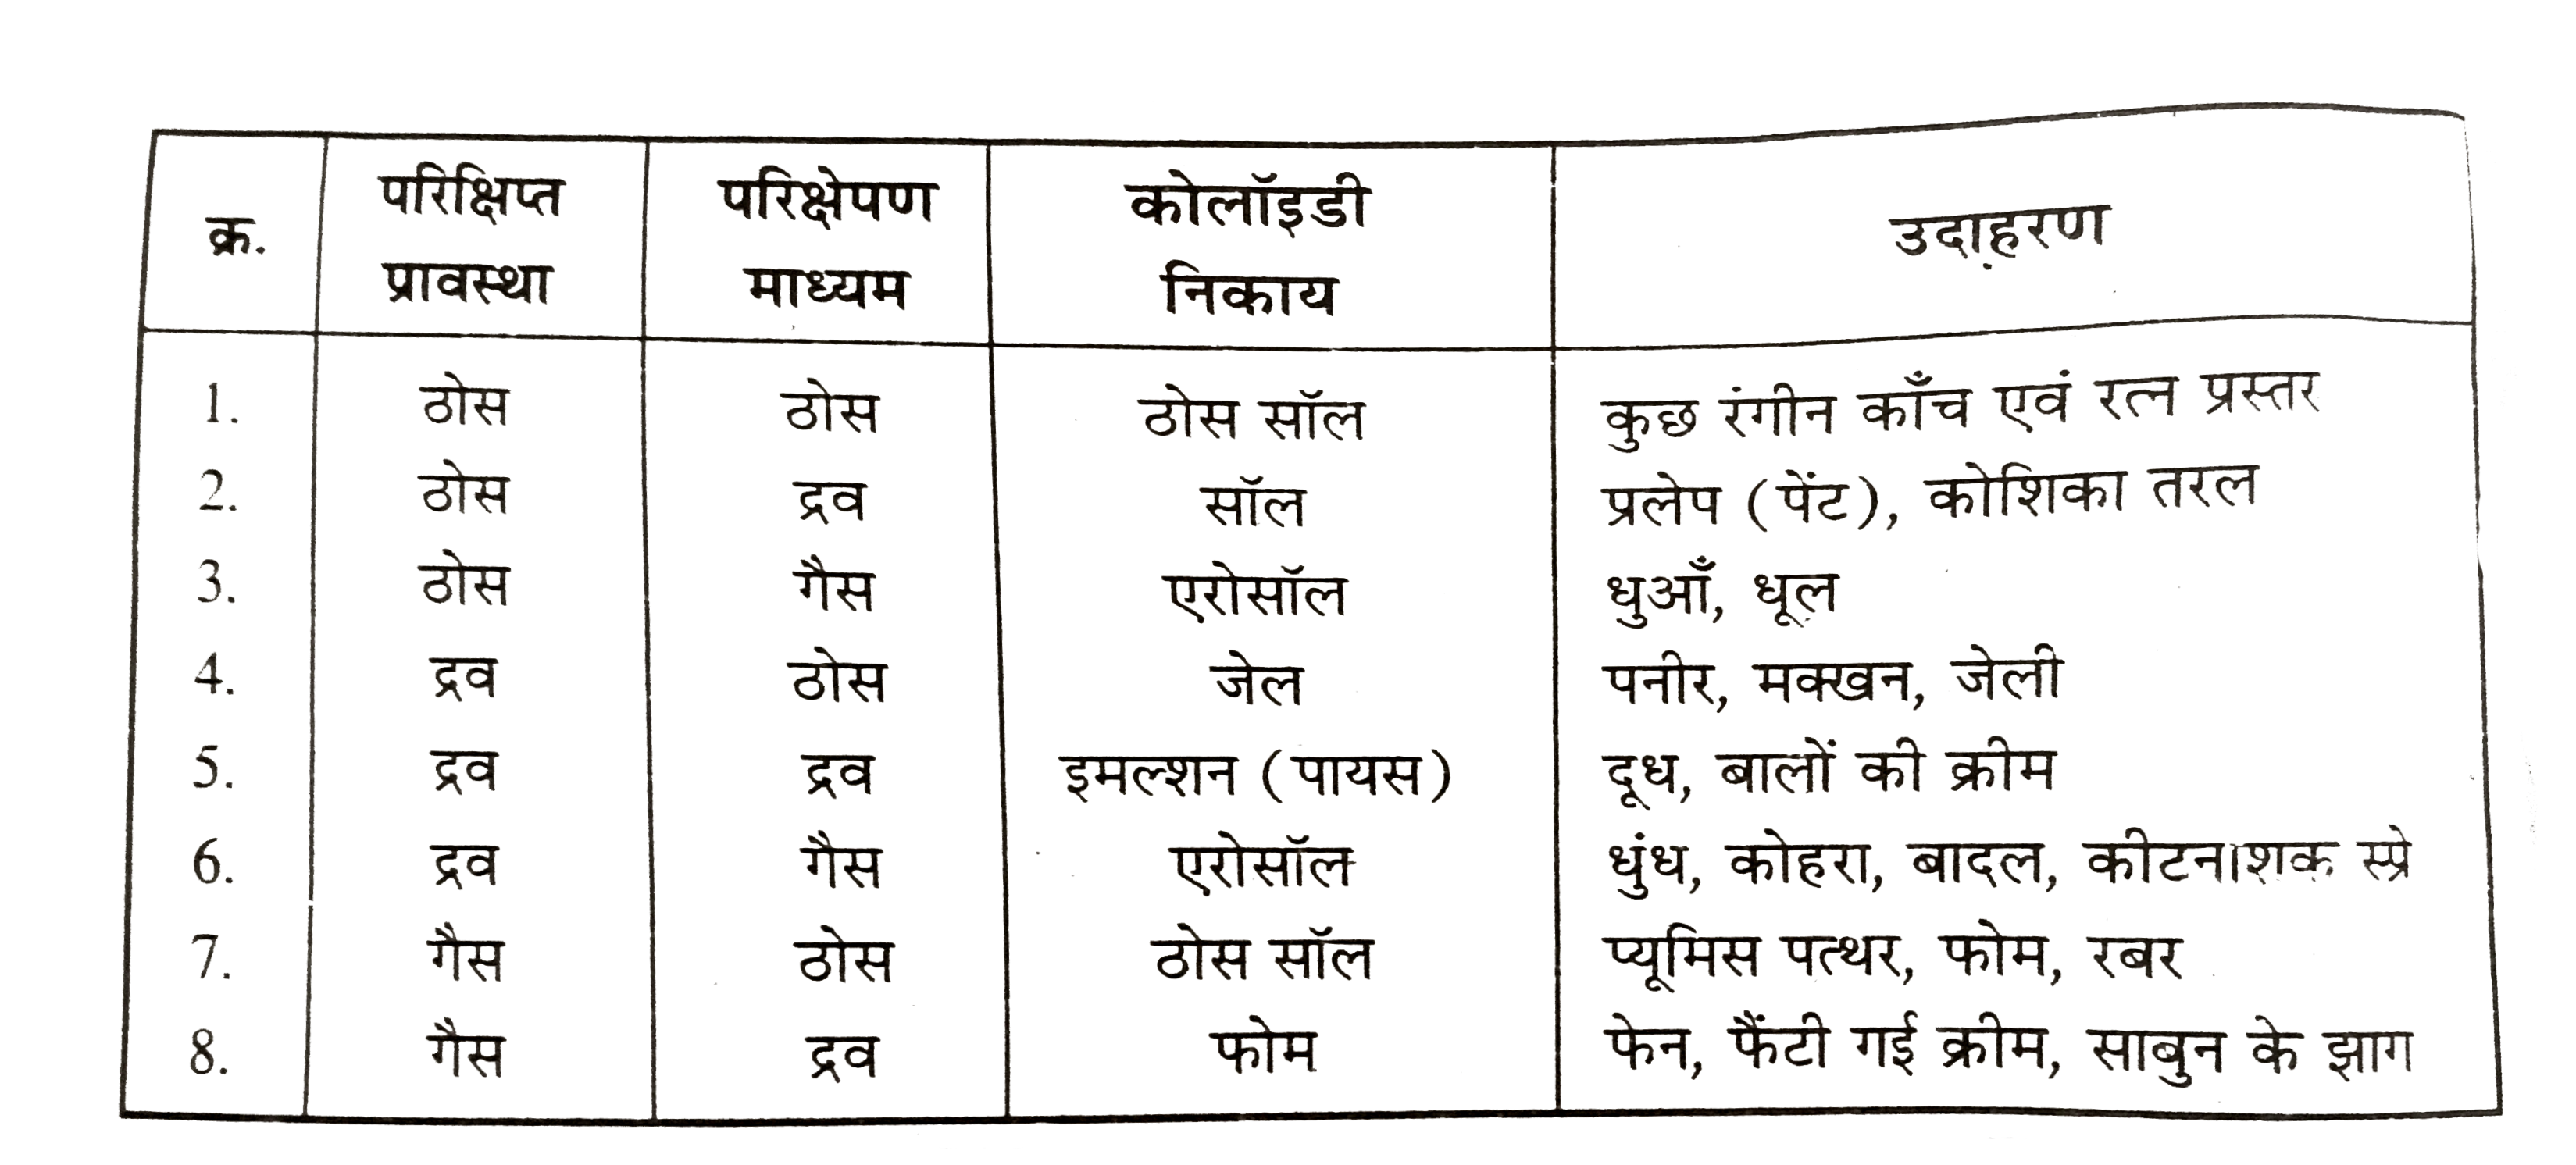 क्र. परिक्षिप्त प्रावस्था परिक्षेपण माध्यम कोलॉइडी निकाय उदाहरण
1. ठोस ठोस ठोस सॉल कुछ रंगीन काँच एवं रत्न प्रस्तर
2. ठोस द्रव सॉल प्रलेप (पेंट), कोशिका तरल
3. ठोस गैस एरोसॉल धुआँ, धूल
4. द्रव ठोस जेल पनीर, मक्खन, जेली
5. द्रव द्रव इमल्शन (पायस) दूध, बालों की क्रीम
6. द्रव गैस एरोसॉल धुंध, कोहरा, बादल, कीटनाशक स्प्रे
7. गैस ठोस ठोस सॉल प्यूमिस पत्थर, फोम, रबर
8. गैस द्रव फोम फेन, फैंटी गई क्रीम, साबुन के झाग